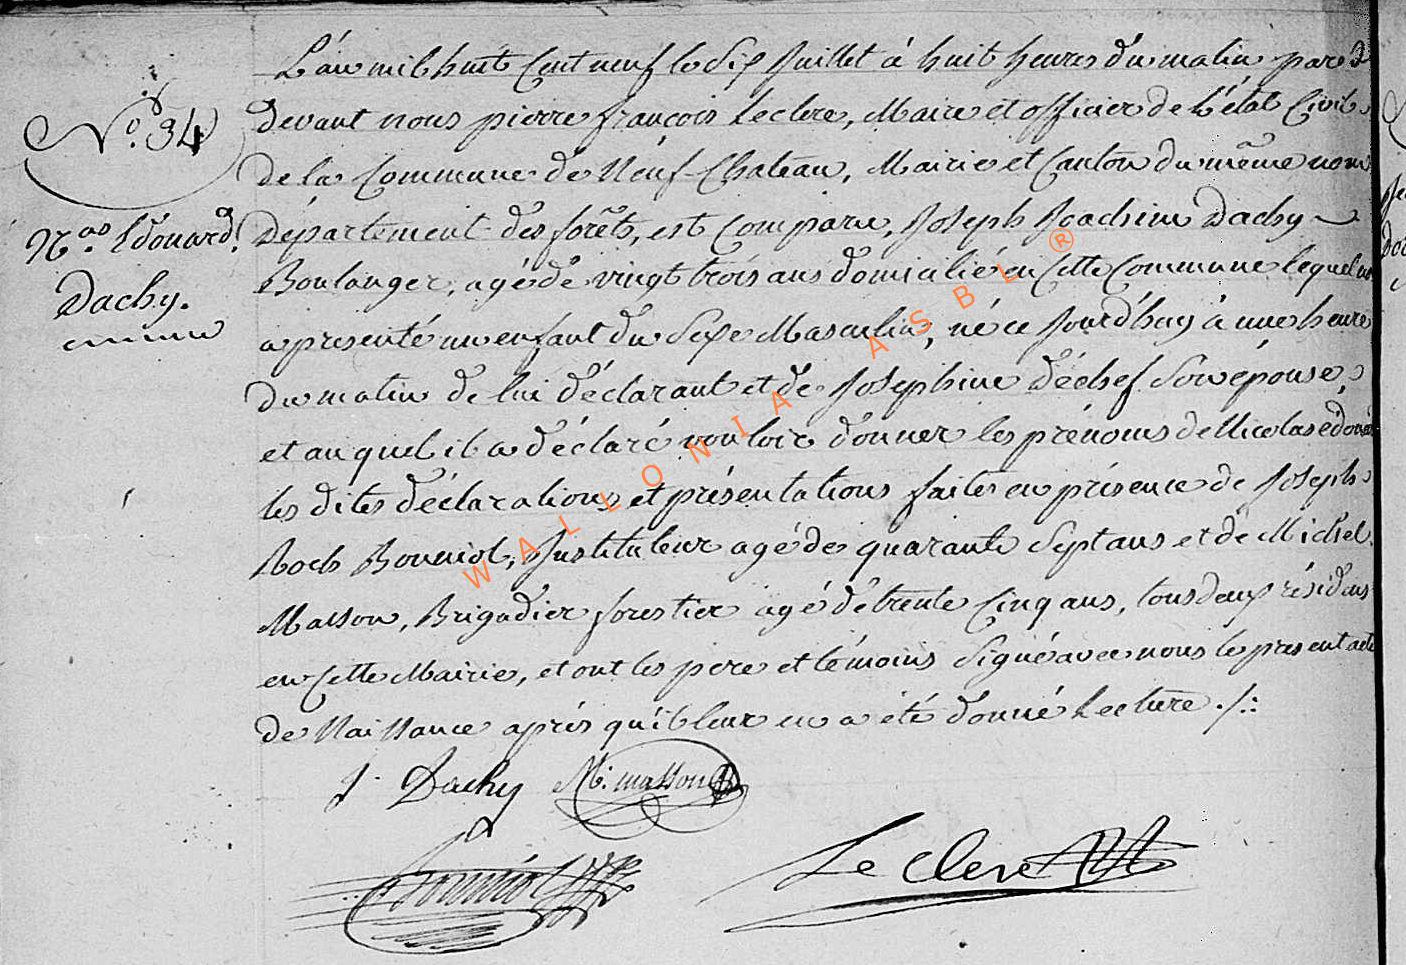 N.o 34
N.as Edouard
Dachy.
L'an mil huit Cent neuf le Six Juillet à huit heures du matin par
devant nous pierre françois Leclere, Maire et officier de L'état Civil
de la Commune de Neuf-Chateau, Mairie et Canton du même nom
Département des forêts, est Comparu, Joseph Joachim Dachy
Boulanger, agé de vingt trois ans domicilié en Cette Commune lequel
a presenté un enfant du Sexe Masculin, né ce Jourd'huy à une heure
du matin de lui déclarant et de Josephine déchef Son épouse,
et auquel il a déclaré vouloir donner les prénoms de Nicolas
les dites déclarations et présentations faites en présence de Joseph
Roch Bouniol, Instituteur agé de quarante Sept ans et de Michel
Masson, Brigadier forestier agé de trente Cinq ans, tous deux résidens
en Cette Mairie, et ont les pere et témoins Signé avec nous le present acte
de Naissance après qu'il leur en a été donné Lecture ./.
J. Dachy M. masson
Bouniol
Leclere
WALLONIA ASBL ®